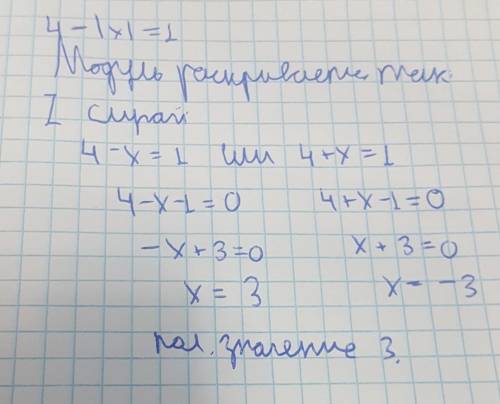 4 - |x| = 1
Модуль раскрываем так:
I случай
4 - x = 1 или 4 + x = 1
4 - x - 1 = 0 4 + x - 1 = 0
-x + 3 = 0 x + 3 = 0
x = 3 x = -3
пол. значение 3.